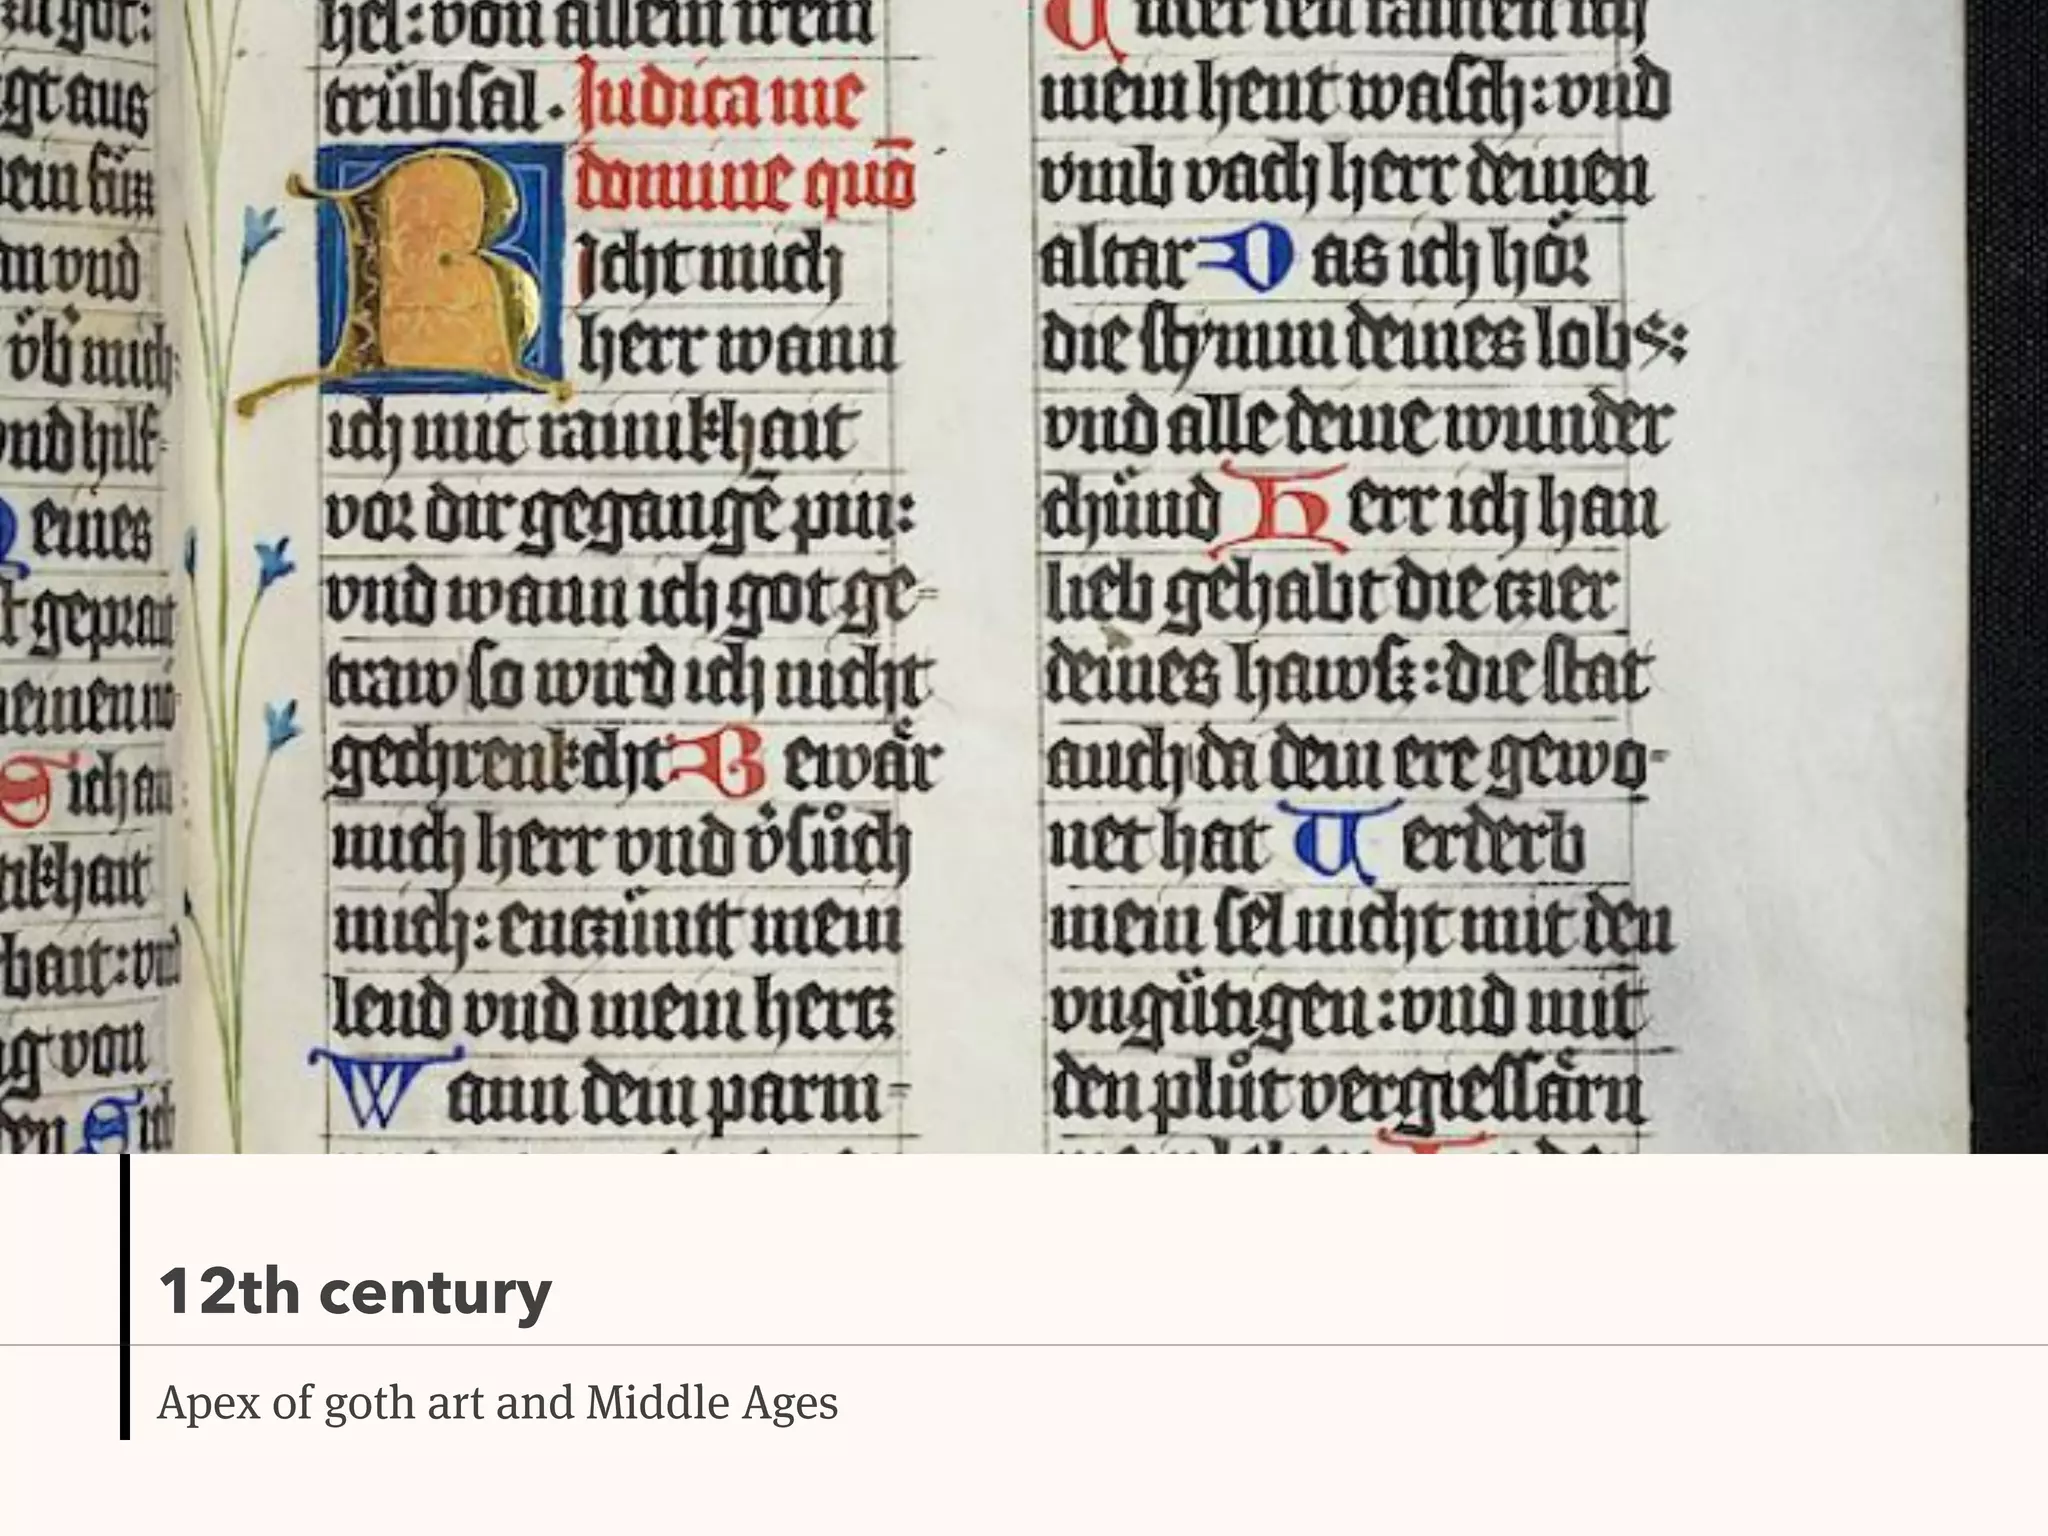 zu got:
gt aus
ein sün
vnd
üb mich
vnd hilf
eines
geprait
meinen
Sich an
ikhait
bait: vnd
g von
en Sich
hel: von allem irem
trübsal. Iudica me
domine quō
Richt mich
herr wann
ich mit ainikhait
vor dir gegangē pin:
vnd wann ich got ge=
traw so wird ich nicht
gechrenkcht Bewär
mich herr vnd v̓süch
mich: enczüntt mein
lend vnd mein hercz
Wann dein parm=
Unter den ich
mein hent wasch: vnd
vmb vach herr deinen
altar Das ich hör
die stymm deines lobs:
vnd alle deine wunder
chünd Herr ich han
lieb gehabt die czier
deines hawsz: die stat
auch da dein ere gewo=
net hat Uerderb
mein sel nicht mit den
vngütigen: vnd mit
den plůt vergiessärn
12th century
Apex of goth art and Middle Ages